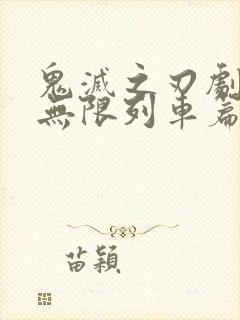 鬼滅之刃劇
無限列車篇
苗穎